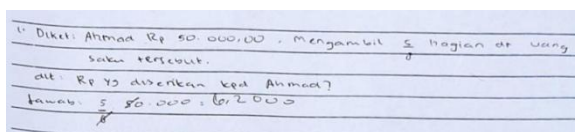 1. Diket: Ahmad Rp 50.000,00. Mengambil 5/8 bagian dr uang
saku tersebut.
dit: Rp yg diberikan kpd Ahmad?
Jawab: 5/8 80.000 = 6,2000